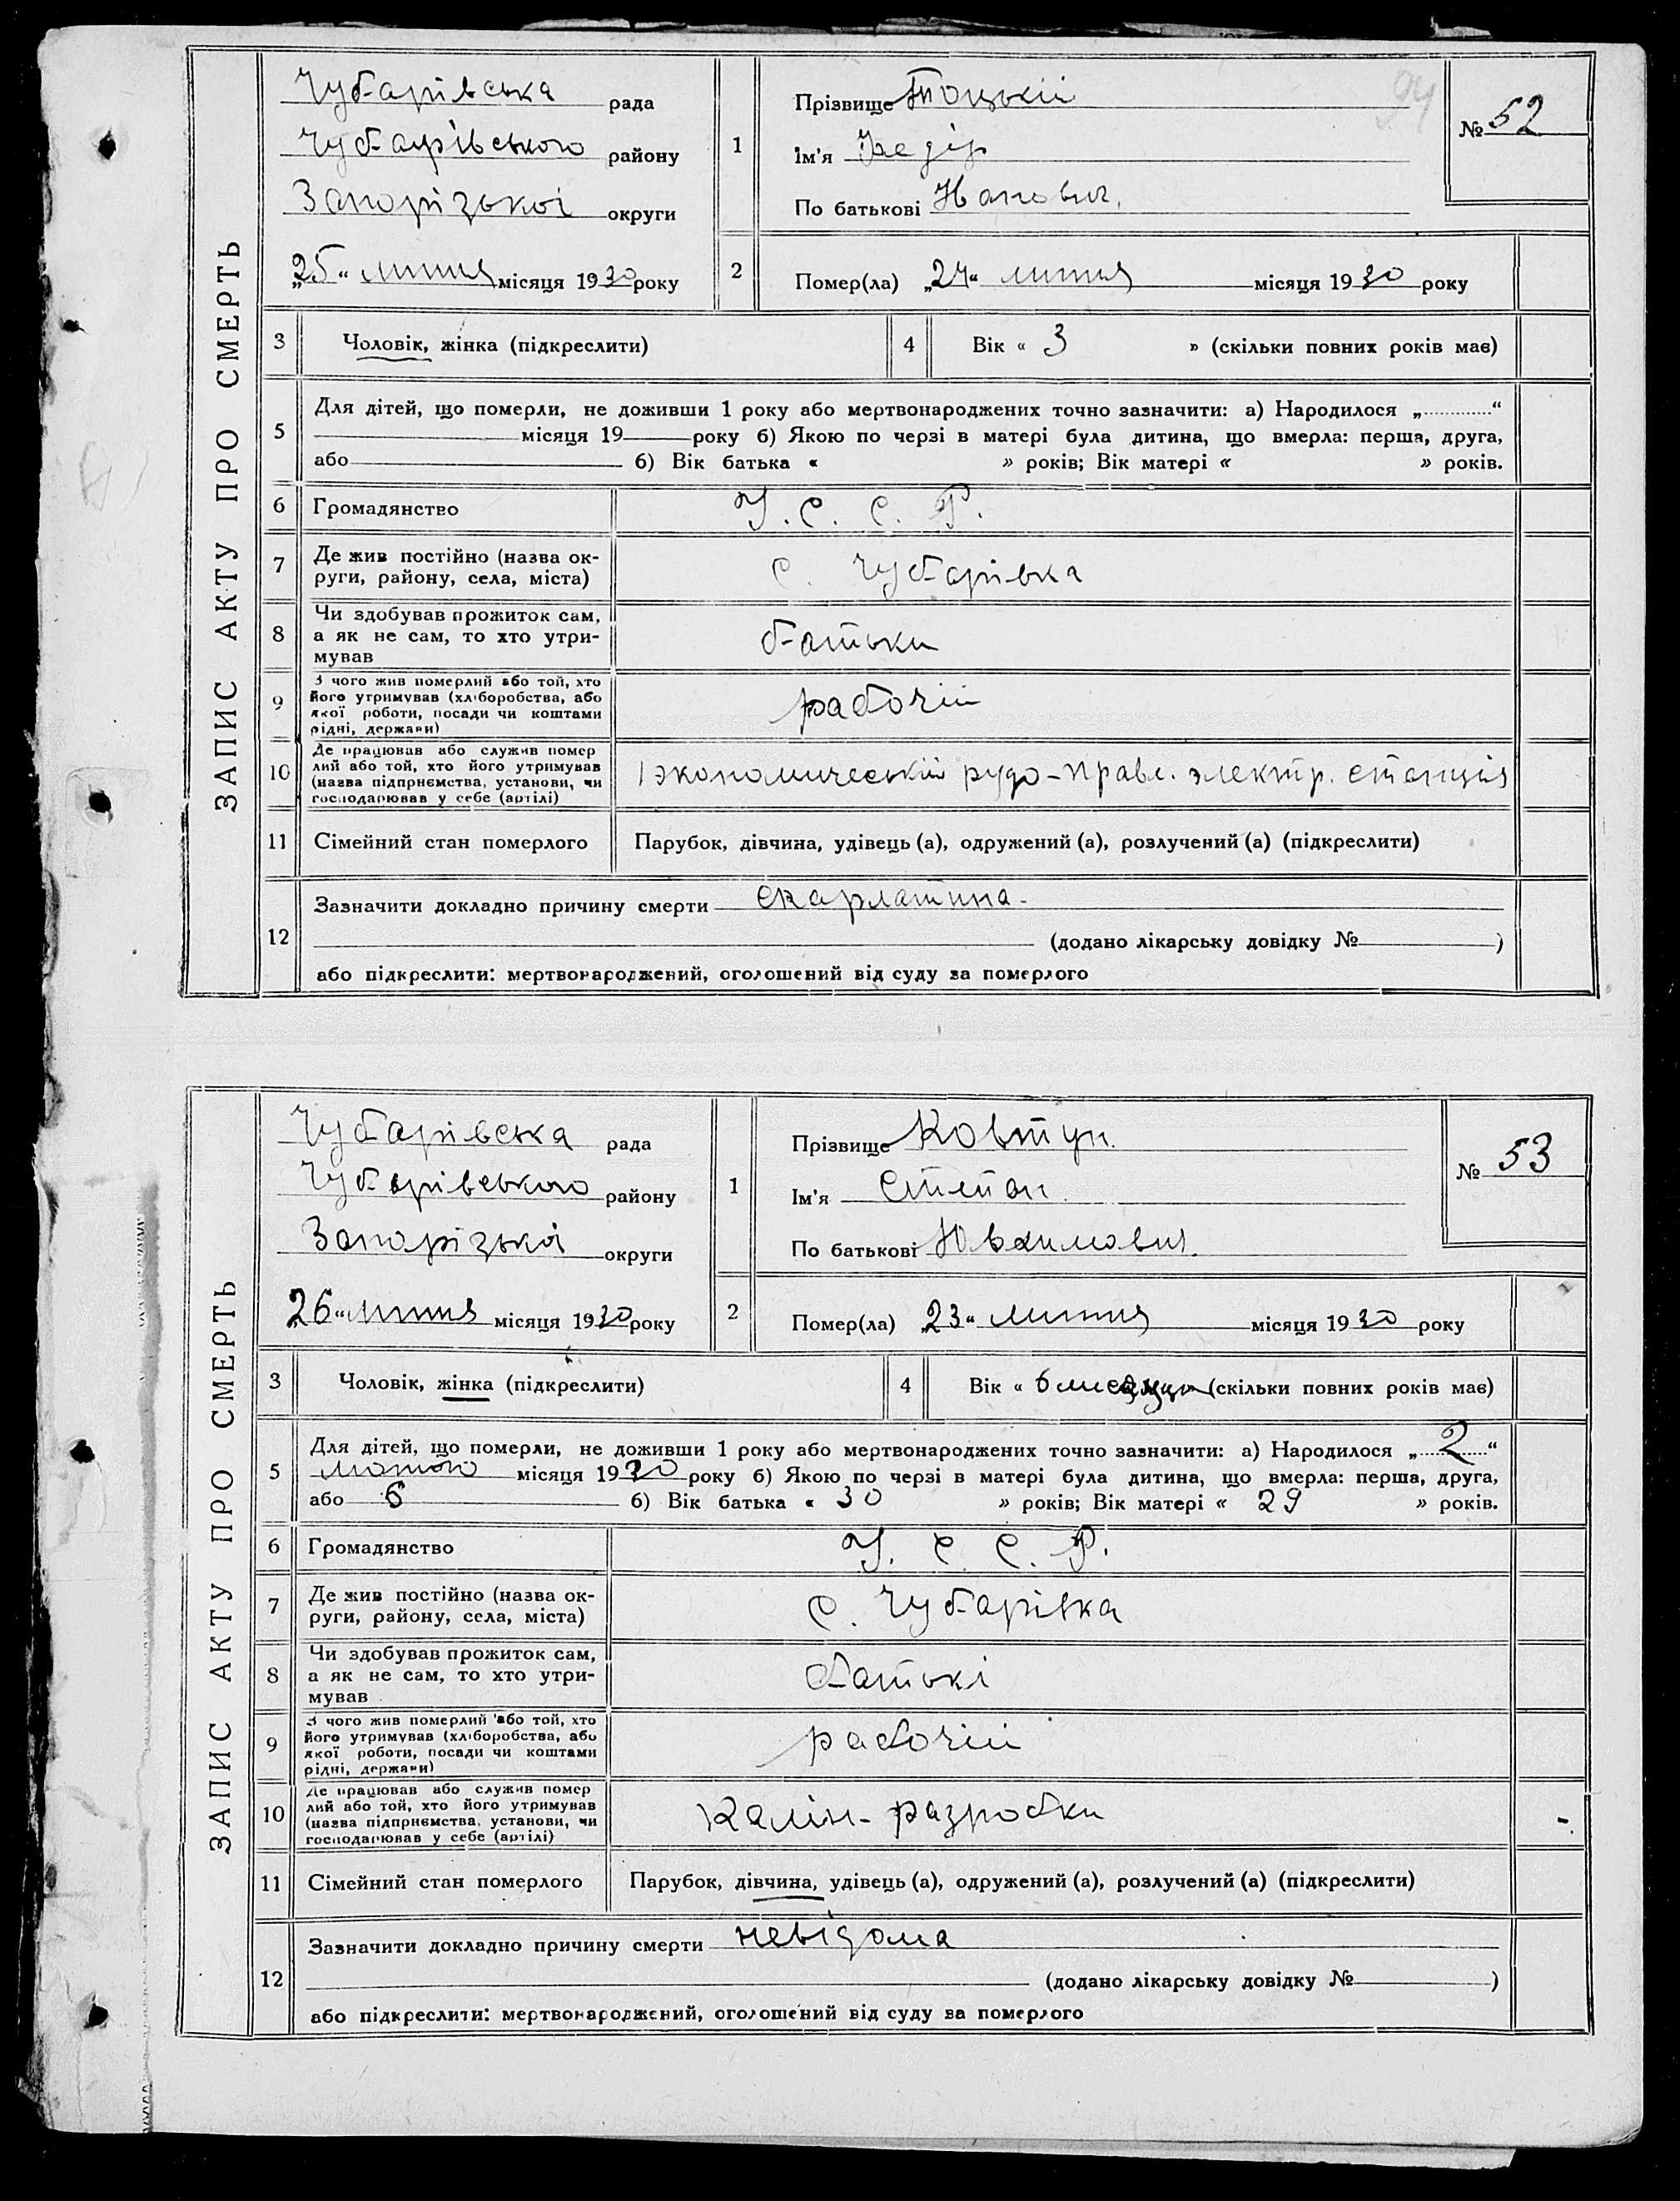 94
ЗАПИС АКТУ ПРО СМЕРТЬ
Чубарівська рада
Чубарівського району
Запорізької округи
„25“ липня місяця 1930 року
1
Прізвище Тоцький
Ім'я Федір
По батькові
№ 52
2
Помер(ла) „24“ липня місяця 1930 року
3 Чоловік, жінка (підкреслити)
4 Вік « 3 » (скільки повних років має)
5 Для дітей, що померли, не доживши 1 року або мертвонароджених точно зазначити: а) Народилося „ “
місяця 19 року б) Якою по черзі в матері була дитина, що вмерла: перша, друга,
або б) Вік батька « » років; Вік матері « » років.
6 Громадянство У. С. С. Р.
7 Де жив постійно (назва ок-
руги, району, села, міста) с. Чубарівка
8 Чи здобував прожиток сам,
а як не сам, то хто утри-
мував батьки
9 З чого жив померлий або той, хто
його утримував (хліборобства, або
якої роботи, посади чи коштами
рідні, держави) рабочий
10 Де працював або служив помер
лий або той, хто його утримував
(назва підприємства, установи, чи
господарював у себе (артілі) экономический рудо-правл. электр. станція
11 Сімейний стан померлого Парубок, дівчина, удівець (а), одружений (а), розлучений (а) (підкреслити)
12 Зазначити докладно причину смерти скарлатина.
(додано лікарську довідку № )
або підкреслити: мертвонароджений, оголошений від суду за померлого
ЗАПИС АКТУ ПРО СМЕРТЬ
Чубарівська рада
Чубарівського району
Запорізької округи
„26“ липня місяця 1930 року
1
Прізвище Ковтун.
Ім'я Степан
По батькові Ювхимович.
№ 53
2
Помер(ла) „23“ липня місяця 1930 року
3 Чоловік, жінка (підкреслити)
4 Вік « 6 місяців (скільки повних років має)
5 Для дітей, що померли, не доживши 1 року або мертвонароджених точно зазначити: а) Народилося „ 2 “
лютого місяця 1930 року б) Якою по черзі в матері була дитина, що вмерла: перша, друга,
або 6 б) Вік батька « 30 » років; Вік матері « 29 » років.
6 Громадянство У. С. С. Р.
7 Де жив постійно (назва ок-
руги, району, села, міста) с. Чубарівка
8 Чи здобував прожиток сам,
а як не сам, то хто утри-
мував батькі
9 З чого жив померлий або той, хто
його утримував (хліборобства, або
якої роботи, посади чи коштами
рідні, держави) рабочий
10 Де працював або служив помер
лий або той, хто його утримував
(назва підприємства, установи, чи
господарював у себе (артілі) Калін-разробки
11 Сімейний стан померлого Парубок, дівчина, удівець (а), одружений (а), розлучений (а) (підкреслити)
12 Зазначити докладно причину смерти невідома
(додано лікарську довідку № )
або підкреслити: мертвонароджений, оголошений від суду за померлого